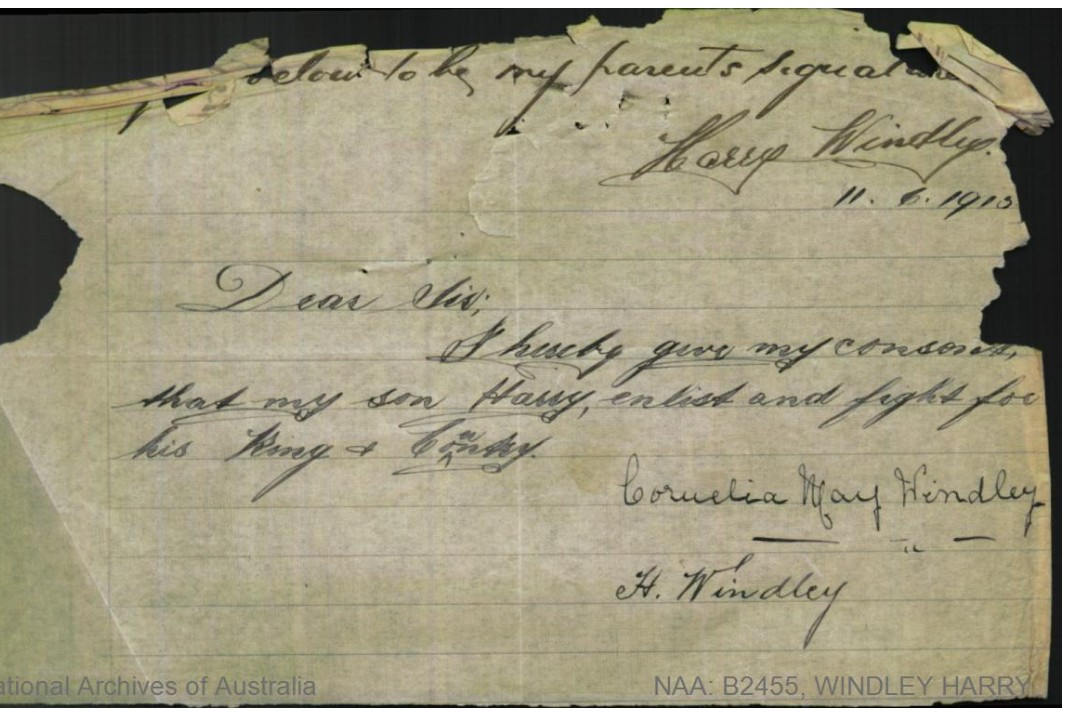 below to be my parent's signature
Harry Windley.
11. 6. 1915
Dear Sir;
I hereby give my consent,
that my son Harry, enlist and fight for
his King & Country.
Cornelia May Windley
H. Windley
ational Archives of Australia
NAA: B2455, WINDLEY HARRY